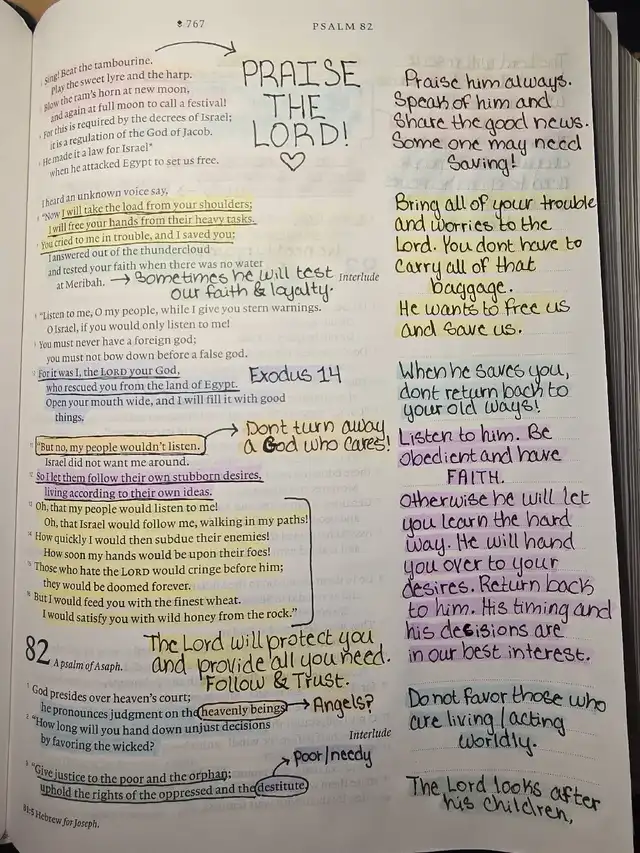 767
PSALM 82
² Sing! Beat the tambourine.
Play the sweet lyre and the harp.
³ Blow the ram's horn at new moon,
and again at full moon to call a festival!
⁴ For this is required by the decrees of Israel;
it is a regulation of the God of Jacob.
⁵ He made it a law for Israel*
when he attacked Egypt to set us free.
PRAISE
THE
LORD!
Praise him always.
Speak of him and
Share the good news.
Some one may need
Saving!
I heard an unknown voice say,
⁶ "Now I will take the load from your shoulders;
I will free your hands from their heavy tasks.
⁷ You cried to me in trouble, and I saved you;
I answered out of the thundercloud
and tested your faith when there was no water
at Meribah. → Sometimes he will test
our faith & loyalty.
Interlude
Bring all of your trouble
and worries to the
Lord. You dont have to
carry all of that
baggage.
He wants to free us
and save us.
⁸ "Listen to me, O my people, while I give you stern warnings.
O Israel, if you would only listen to me!
⁹ You must never have a foreign god;
you must not bow down before a false god.
¹⁰ For it was I, the LORD your God,
who rescued you from the land of Egypt.
Open your mouth wide, and I will fill it with good
things.
Exodus 14
When he saves you,
dont return back to
your old ways!
¹¹ "But no, my people wouldn't listen.
Israel did not want me around.
Dont turn away
a God who cares!
¹² So I let them follow their own stubborn desires,
living according to their own ideas.
¹³ Oh, that my people would listen to me!
Oh, that Israel would follow me, walking in my paths!
¹⁴ How quickly I would then subdue their enemies!
How soon my hands would be upon their foes!
¹⁵ Those who hate the LORD would cringe before him;
they would be doomed forever.
¹⁶ But I would feed you with the finest wheat.
I would satisfy you with wild honey from the rock."
Listen to him. Be
obedient and have
FAITH.
Otherwise he will let
you learn the hard
way. He will hand
you over to your
desires. Return back
to him. His timing and
his decisions are
in our best interest.
The Lord will protect you
and provide all you need.
Follow & Trust.
82 A psalm of Asaph.
¹ God presides over heaven's court;
he pronounces judgment on the heavenly beings: → Angels?
² "How long will you hand down unjust decisions
by favoring the wicked?
Interlude
Do not favor those who
are living/acting
worldly.
poor/needy
³ "Give justice to the poor and the orphan;
uphold the rights of the oppressed and the destitute.
The Lord looks after
his children,
81:5 Hebrew for Joseph.